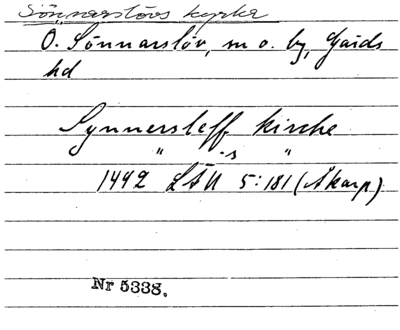 Sönnarslövs kyrka
Ö. Sönnarslöv, sn o. by, Gärds
hd
Synnersleff kirche
" s "
1492 LÄU 5:181 (Åkarp)
Nr 5338.